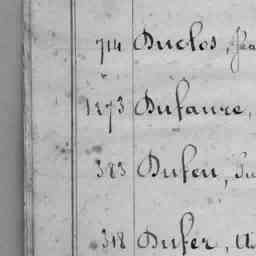 714 Duclos, Jea
1273 Dufaure,
383 Dufeu,
318 Dufer,